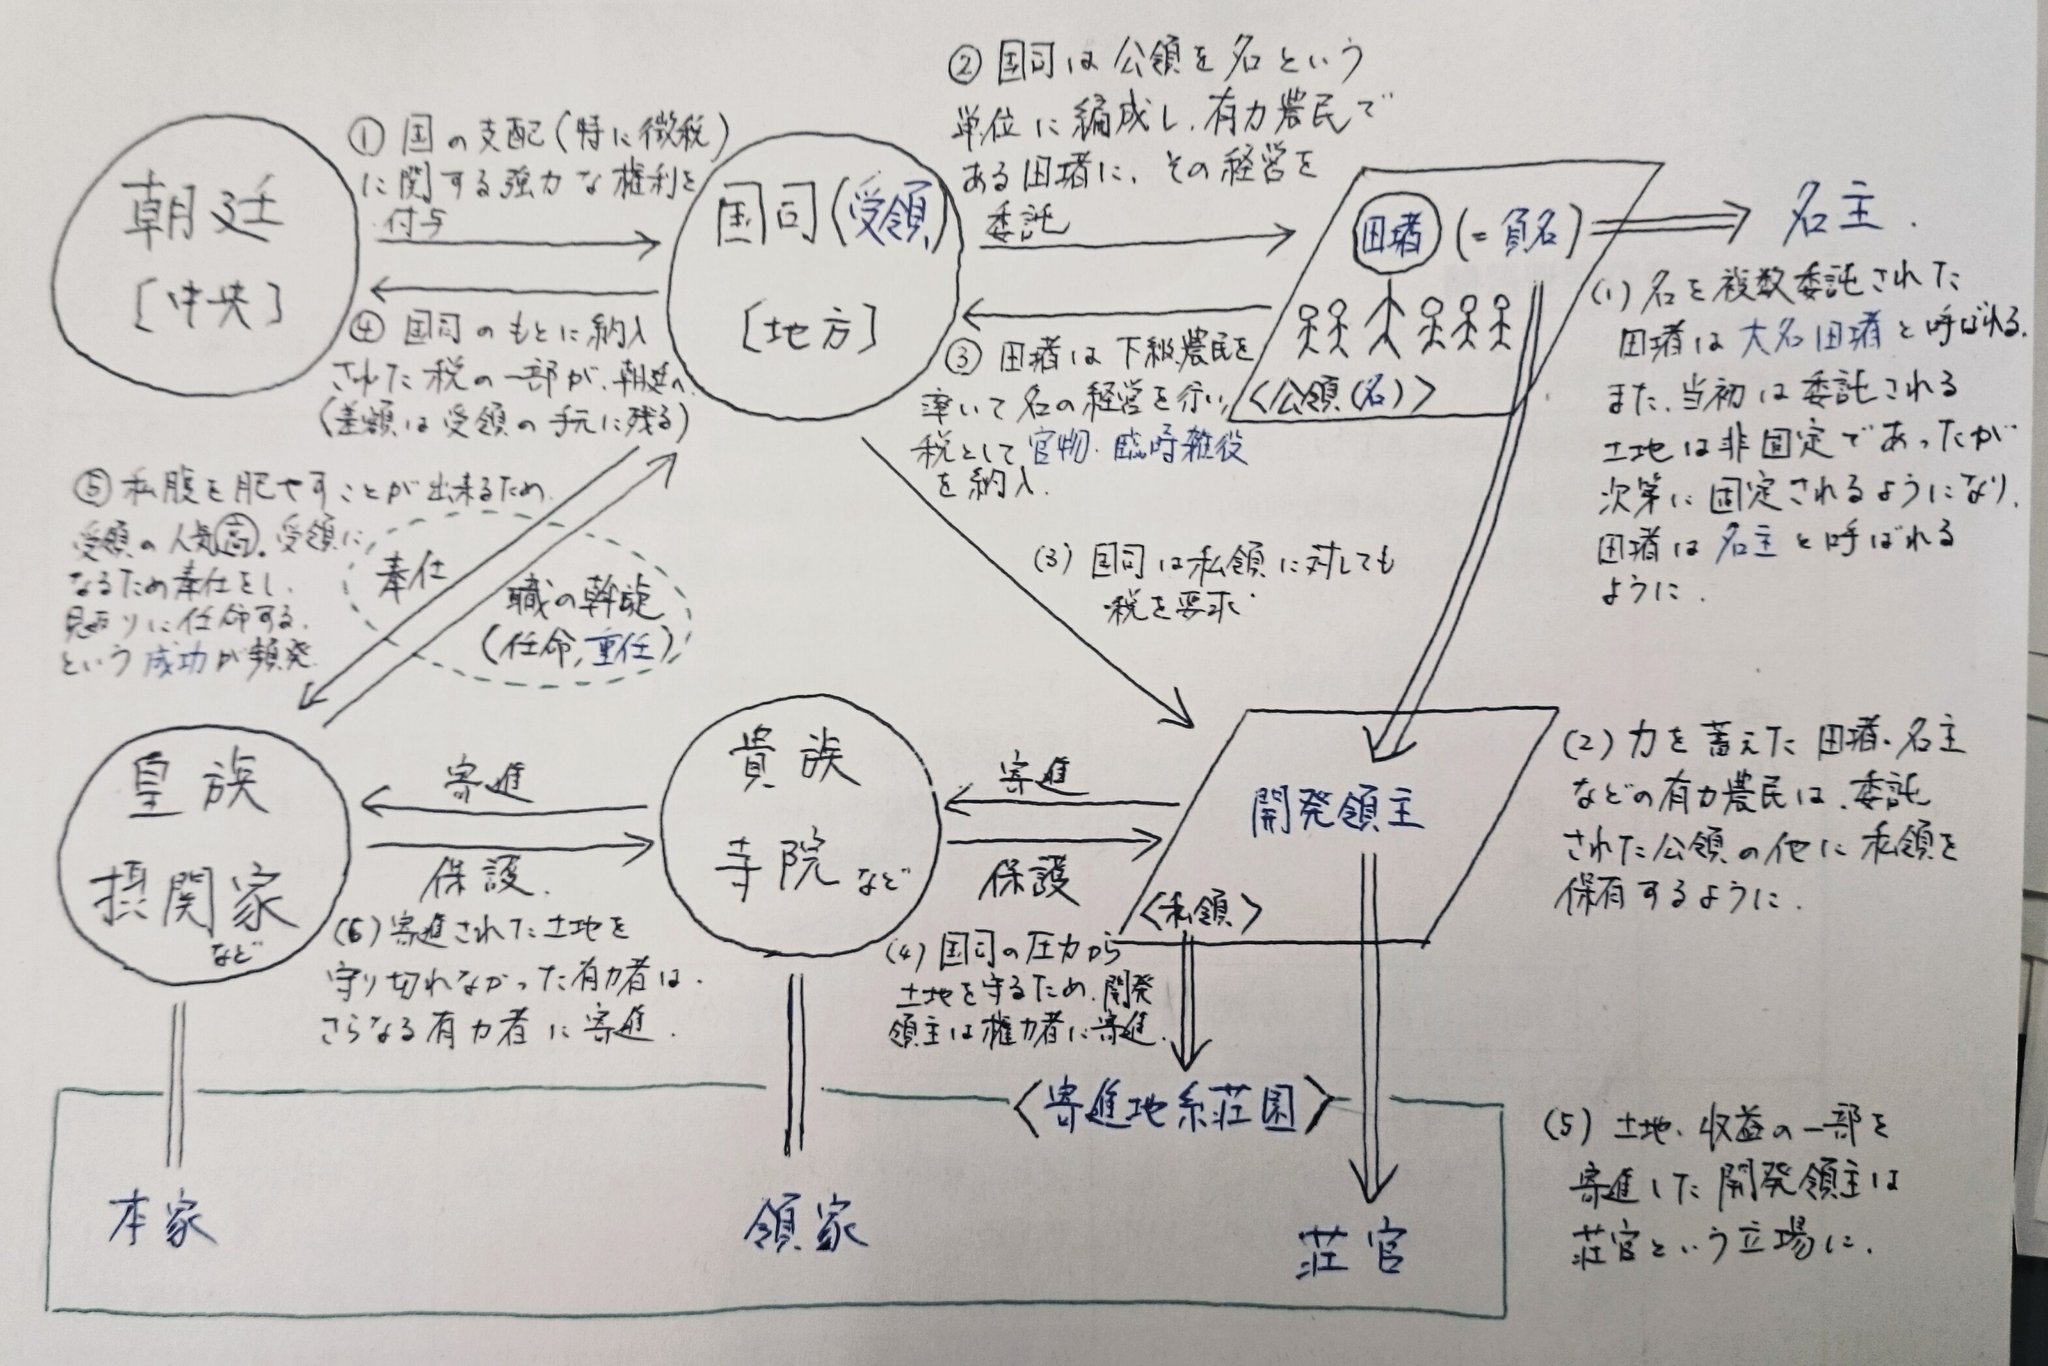 ② 国司は公領を名という
単位に編成し、有力農民で
ある田堵に、その経営を
委託
① 国の支配(特に徴税)
に関する強力な権利を
付与
朝廷
[中央]
国司(受領)
[地方]
田堵(=負名)
名主.
<公領(名)>
④ 国司のもとに納入
された税の一部が、朝廷へ
(差額は受領の手元に残る)
③ 田堵は下級農民を
率いて名の経営を行い、
税として官物・臨時雑役
を納入.
(1) 名を複数委託された
田堵は大名田堵と呼ばれる.
また、当初は委託される
土地は非固定であったが
次第に固定されるようになり、
田堵は名主と呼ばれる
ように.
⑤ 私腹を肥やすことが出来るため、
受領の人気高. 受領に
なるため奉仕をし、
見返りに任命する.
という成功が頻発.
奉仕
職の斡旋
(任命,重任)
(3) 国司は私領に対しても
税を要求
皇族
摂関家
など
寄進
保護.
貴族
寺院など
寄進
保護
開発領主
<私領>
(2) 力を蓄えた田堵・名主
などの有力農民は、委託
された公領の他に私領を
保有するように.
(6) 寄進された土地を
守り切れなかった有力者は、
さらなる有力者に寄進.
(4) 国司の圧力から
土地を守るため、開発
領主は権力者に寄進.
<寄進地系荘園>
(5) 土地、収益の一部を
寄進した開発領主は
荘官という立場に.
本家
領家
荘官